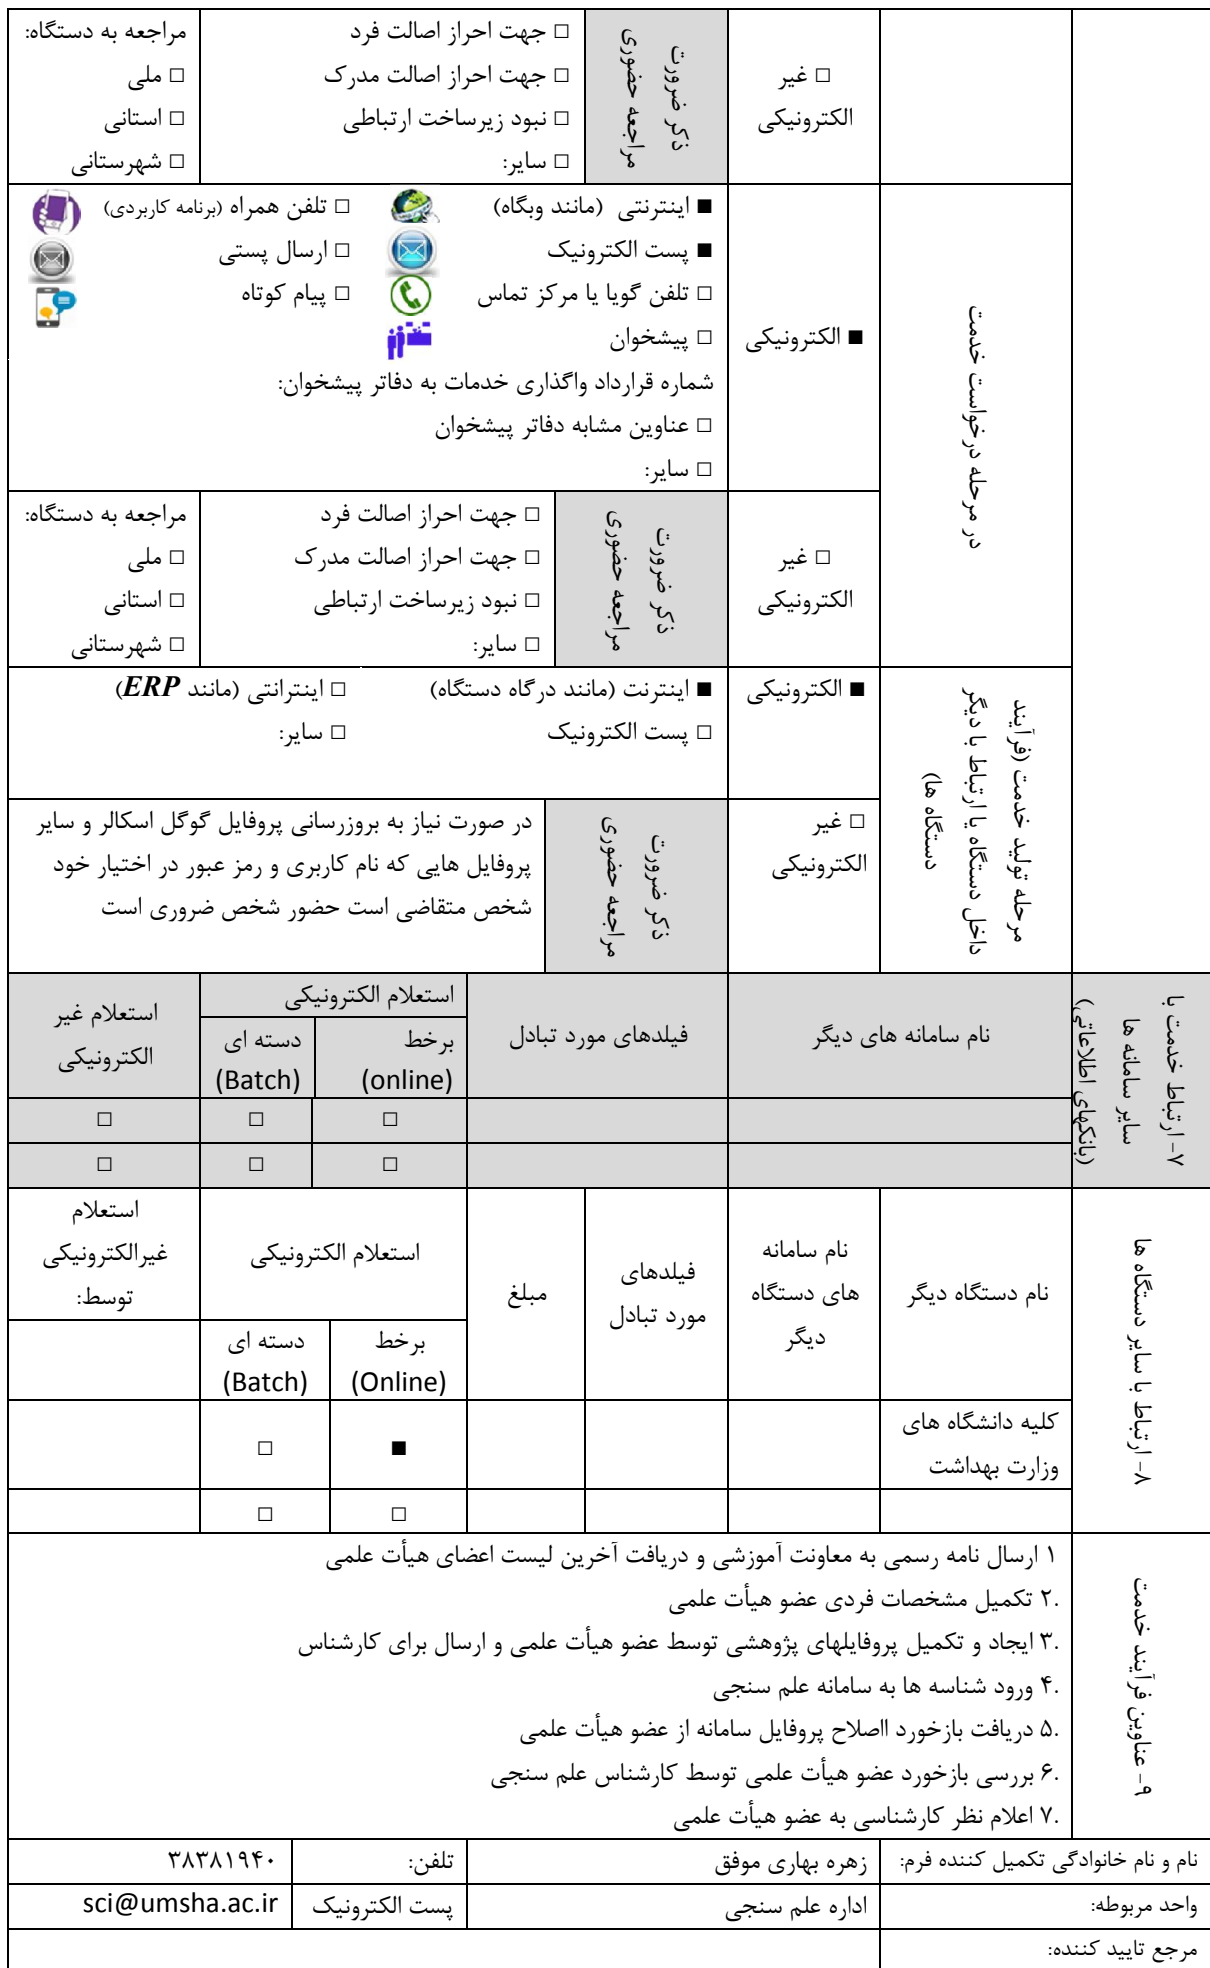 □ غیر
الکترونیکی
ذکر ضرورت
مراجعه حضوری
□ جهت احراز اصالت فرد
□ جهت احراز اصالت مدرک
□ نبود زیرساخت ارتباطی
□ سایر:
مراجعه به دستگاه:
□ ملی
□ استانی
□ شهرستانی
در مرحله درخواست خدمت
■ الکترونیکی
■ اینترنتی (مانند وبگاه) □ تلفن همراه (برنامه کاربردی)
■ پست الکترونیک □ ارسال پستی
□ تلفن گویا یا مرکز تماس □ پیام کوتاه
□ پیشخوان
شماره قرارداد واگذاری خدمات به دفاتر پیشخوان:
□ عناوین مشابه دفاتر پیشخوان
□ سایر:
□ غیر
الکترونیکی
ذکر ضرورت
مراجعه حضوری
□ جهت احراز اصالت فرد
□ جهت احراز اصالت مدرک
□ نبود زیرساخت ارتباطی
□ سایر:
مراجعه به دستگاه:
□ ملی
□ استانی
□ شهرستانی
مرحله تولید خدمت (فرآیند
داخل دستگاه یا ارتباط با دیگر
دستگاه ها)
■ الکترونیکی
■ اینترنت (مانند درگاه دستگاه) □ اینترانتی (مانند ERP)
□ پست الکترونیک □ سایر:
□ غیر
الکترونیکی
ذکر ضرورت
مراجعه حضوری
در صورت نیاز به بروزرسانی پروفایل گوگل اسکالر و سایر
پروفایل هایی که نام کاربری و رمز عبور در اختیار خود
شخص متقاضی است حضور شخص ضروری است
۷- ارتباط خدمت با
سایر سامانه ها
(بانکهای اطلاعاتی)
نام سامانه های دیگر
فیلدهای مورد تبادل
استعلام الکترونیکی
برخط
(online)
دسته ای
(Batch)
استعلام غیر
الکترونیکی
□ □ □
□ □ □
۸- ارتباط با سایر دستگاه ها
نام دستگاه دیگر
نام سامانه
های دستگاه
دیگر
فیلدهای
مورد تبادل
مبلغ
استعلام الکترونیکی
برخط
(Online)
دسته ای
(Batch)
استعلام
غیرالکترونیکی
توسط:
کلیه دانشگاه های
وزارت بهداشت
■ □
□ □
۹- عناوین فرآیند خدمت
۱ ارسال نامه رسمی به معاونت آموزشی و دریافت آخرین لیست اعضای هیأت علمی
.۲ تکمیل مشخصات فردی عضو هیأت علمی
.۳ ایجاد و تکمیل پروفایلهای پژوهشی توسط عضو هیأت علمی و ارسال برای کارشناس
.۴ ورود شناسه ها به سامانه علم سنجی
.۵ دریافت بازخورد ااصلاح پروفایل سامانه از عضو هیأت علمی
.۶ بررسی بازخورد عضو هیأت علمی توسط کارشناس علم سنجی
.۷ اعلام نظر کارشناسی به عضو هیأت علمی
نام و نام خانوادگی تکمیل کننده فرم: زهره بهاری موفق تلفن: ۳۸۳۸۱۹۴۰
واحد مربوطه: اداره علم سنجی پست الکترونیک sci@umsha.ac.ir
مرجع تایید کننده: